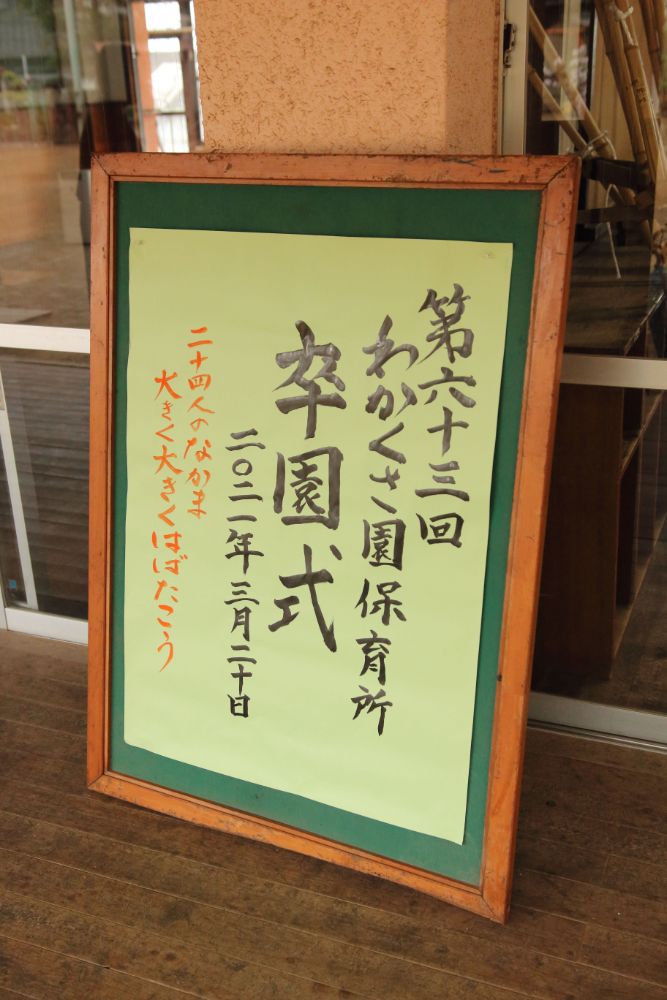 第六十三回
わかくさ園保育所
卒園式
二〇二一年三月二十日
二十四人のなかま
大きく大きくはばたこう